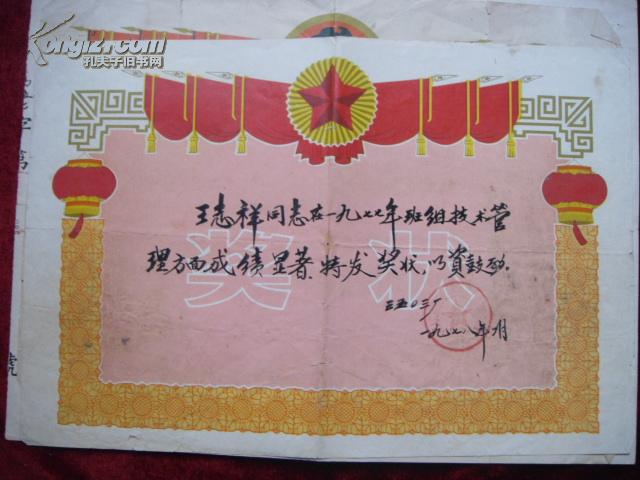 Kongfz.com
孔夫子旧书网
奖状
王志祥同志在一九七七年班组技术管
理方面成绩显著,特发奖状,以资鼓励.
三五〇三厂
一九七八年 月
號